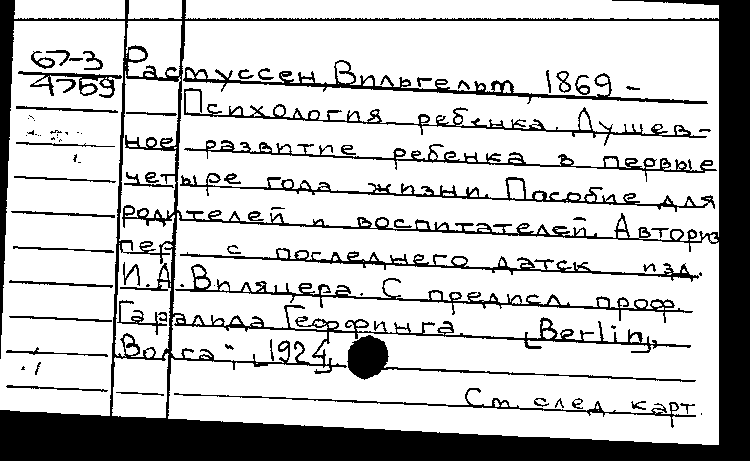 67-3
4759
Расмуссен, Вильгельм, 1869 -
Психология ребенка. Душев-
ное развитие ребенка в первые
четыре года жизни. Пособие для
родителей и воспитателей. Авториз
пер с последнего датск изд.
И.А. Виляцера. С предисл. проф.
Гаральда Геффдинга. [Berlin],
"Волга", [1924]
См. след. карт.